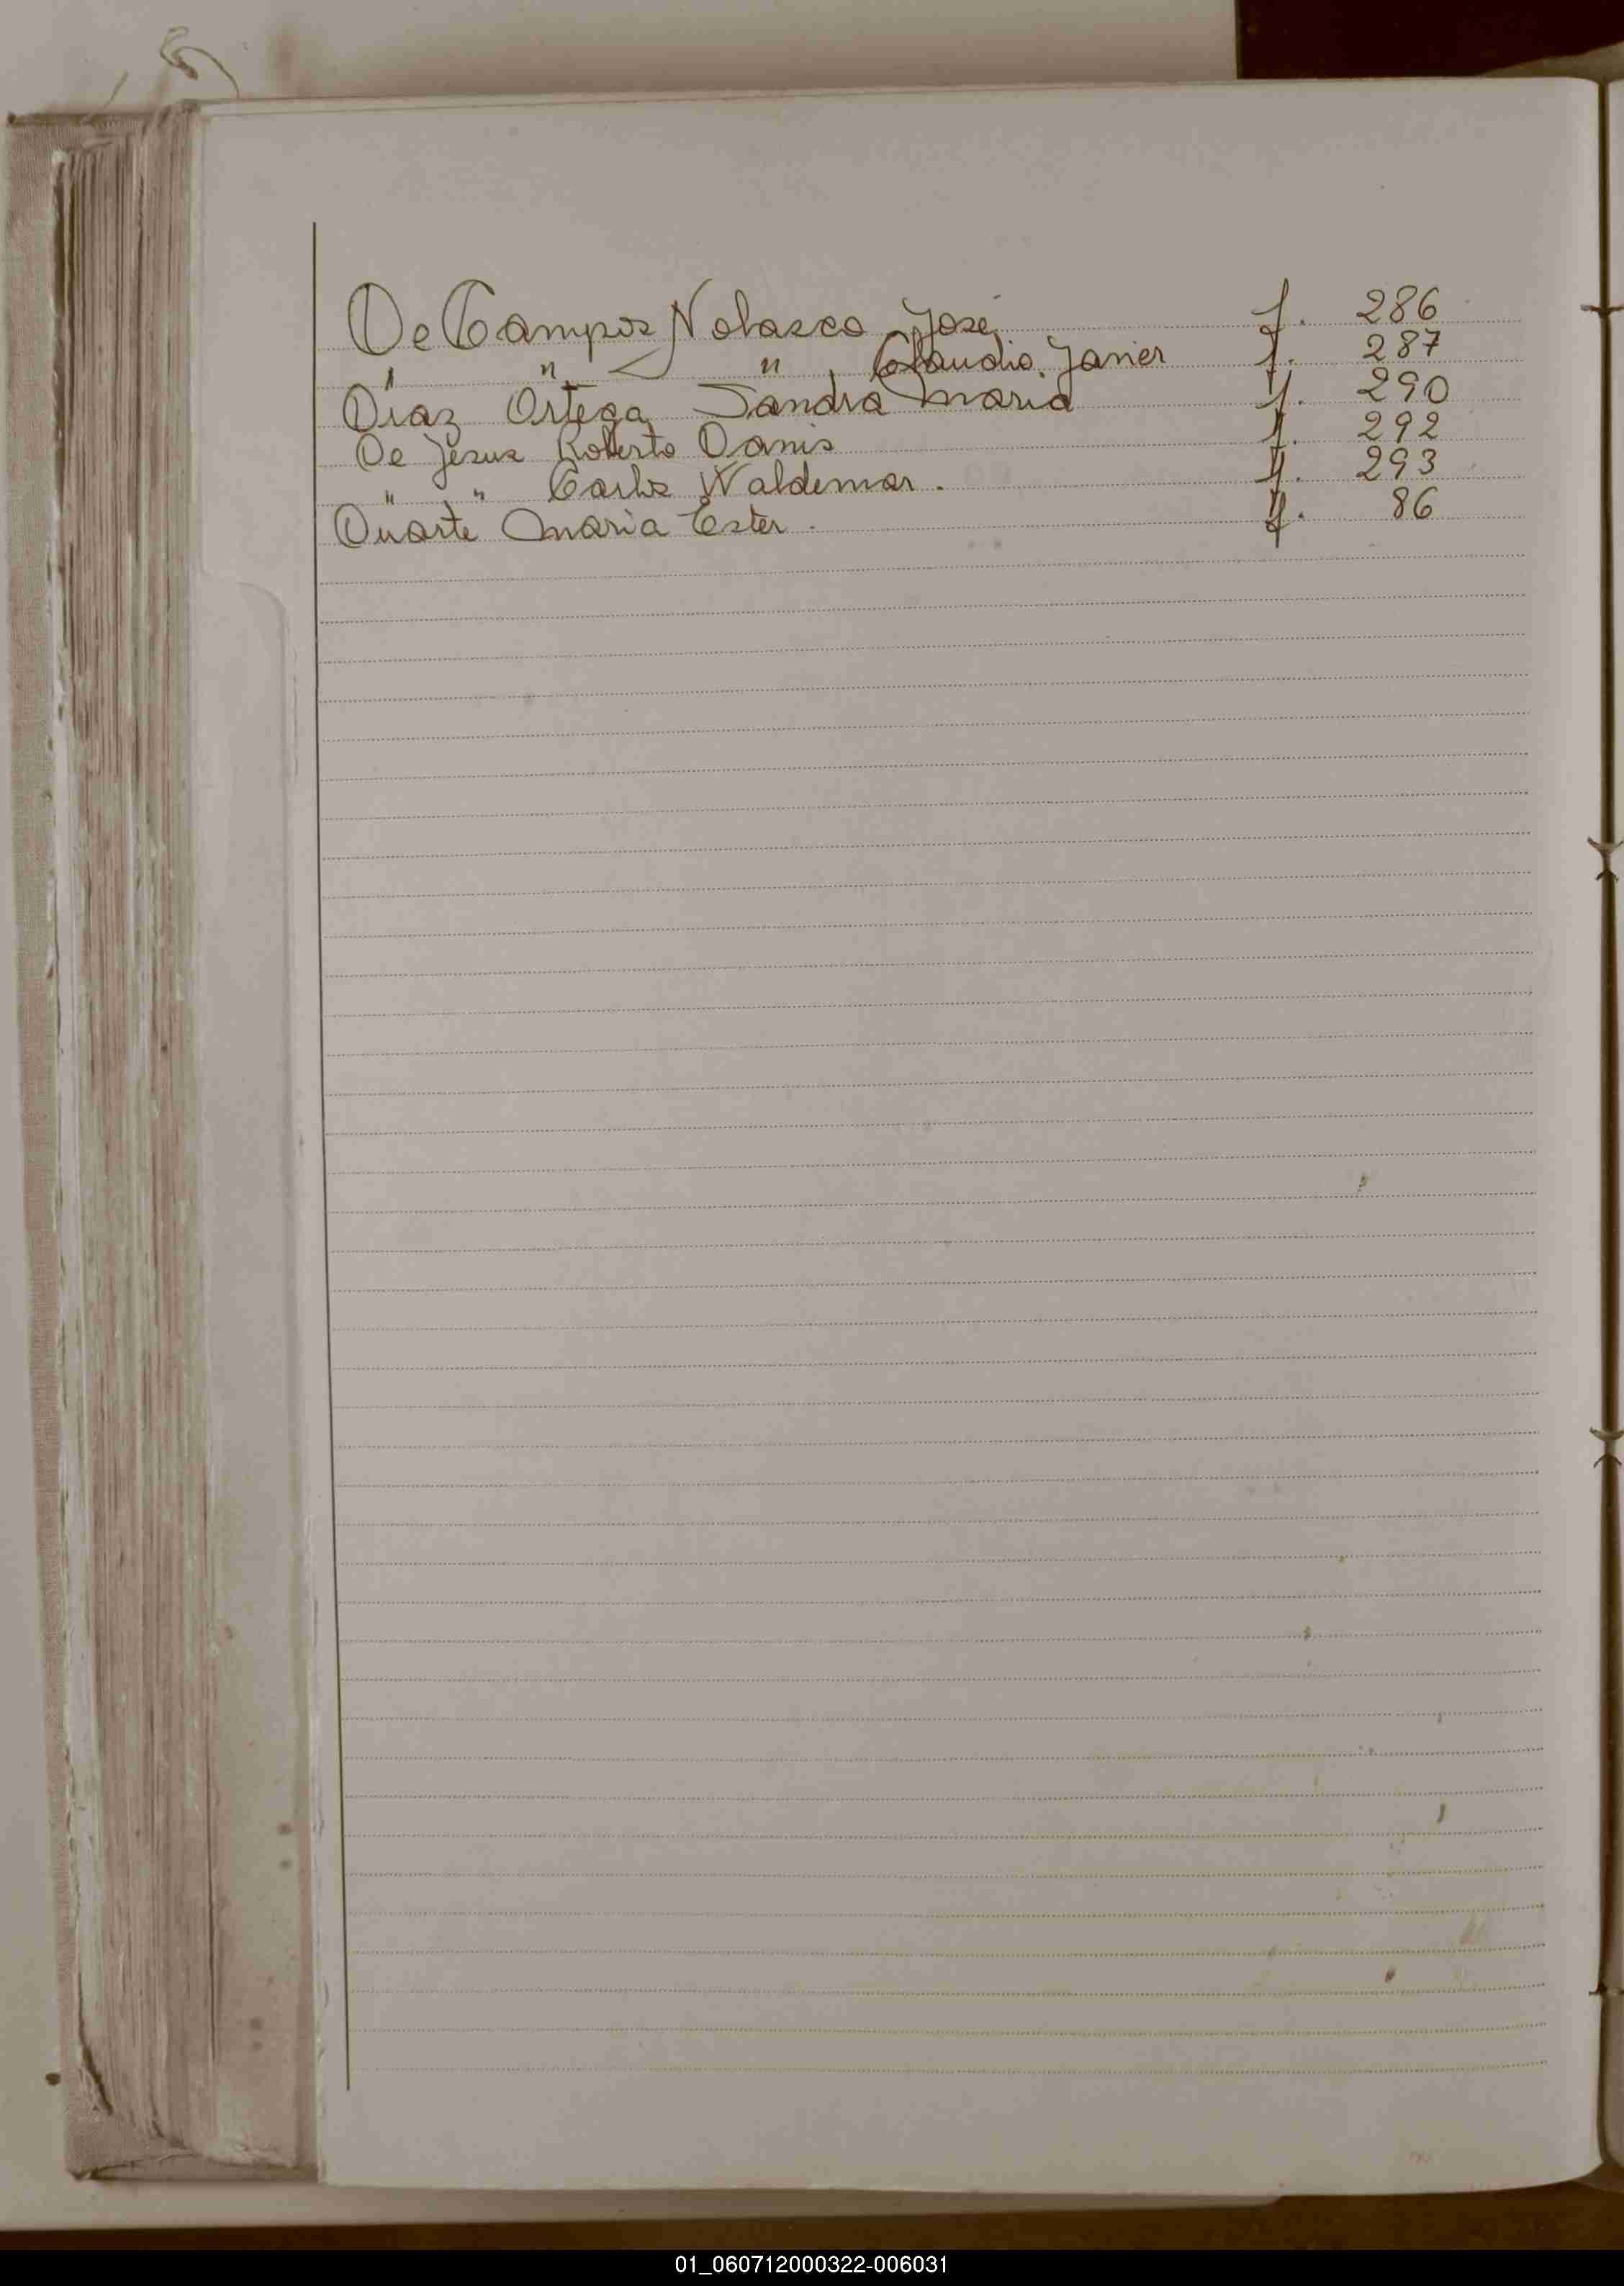 De Campos Nolasco José f. 286
" " " Claudio Javier f. 287
Diaz Ortega Sandra Maria f. 290
De Jesus Roberto Danis f. 292
" " Carlos Waldemar. f. 293
Duarte Maria Ester. f. 86
01_060712000322-006031